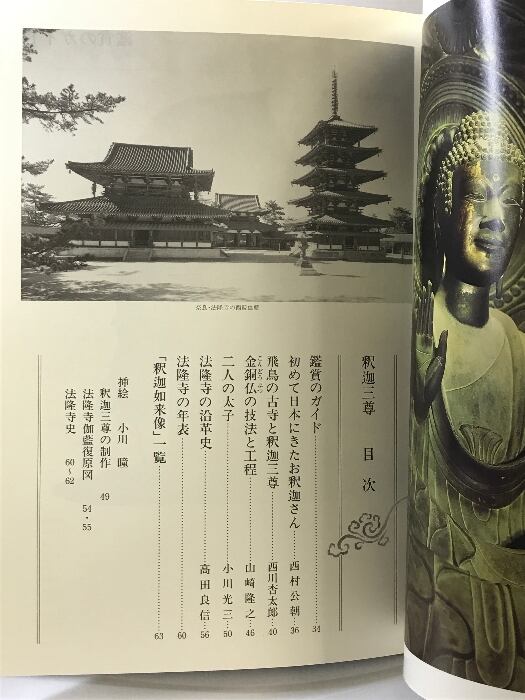 奈良・法隆寺の西院伽藍
釈迦三尊 目次
鑑賞のガイド……34
初めて日本にきたお釈迦さん……西村公朝…36
飛鳥の古寺と釈迦三尊……西川杏太郎…40
金銅仏の技法と工程……山崎隆之…46
こんどうぶつ
二人の太子……小川光三…50
法隆寺の沿革史……高田良信…56
法隆寺の年表……60
「釈迦如来像」一覧……63
挿絵 小川 瞳
釈迦三尊の制作 49
法隆寺伽藍復原図 54・55
法隆寺史 60〜62